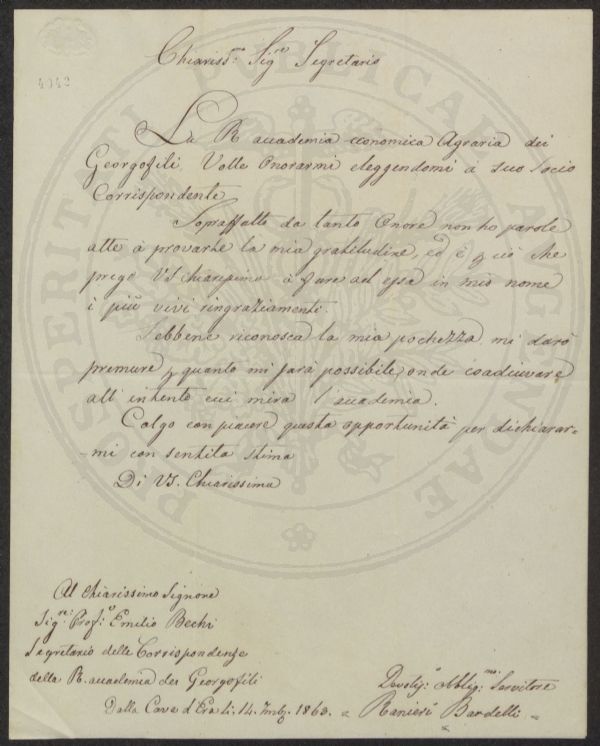 4042
Chiariss.mo Sig.re Segretario
La R. accademia economica Agraria dei
Georgofili Volle Onorarmi eleggendomi a suo Socio
Corrispondente
Sopraffatto da tanto Onore non ho parole
atte à provarne la mia gratitudine, ed è p ciò che
prego VS Chiarissima à fare ad essa in mio nome
i più vivi ringraziamenti.
Sebbene riconosca la mia pochezza mi darò
premure p quanto mi sarà possibile, onde coadiuvare
all'intento cui mira l'accademia.
Colgo con piacere questa opportunità per dichiarar=
=mi con sentita stima
Di VS. Chiarissima
Al Chiarissimo Signore
Sig.re Prof.e Emilio Bechi
Segretario delle Corrispondenze
della R. accademia dei Georgofili
Dalla Cava d'Era li 14. 1863.
Devotis.o Obblig.mo Servitore
Ranieri Bardelli
PROSPERITATI PUBLICAE AUGENDAE